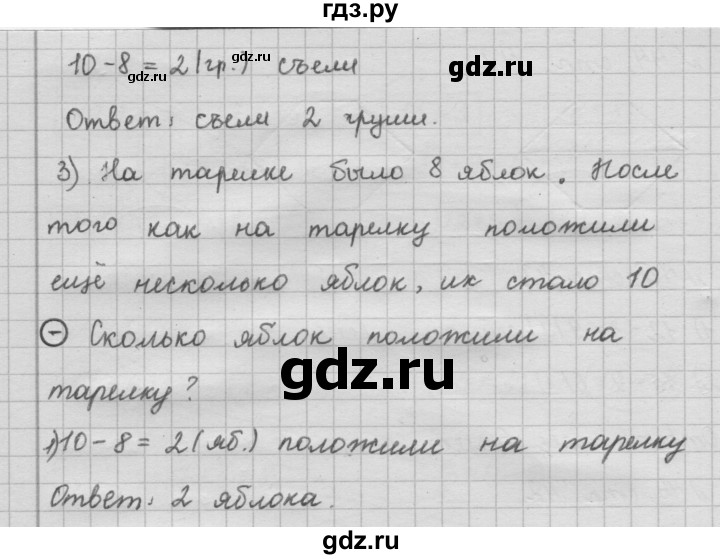 гдз.ру
10-8=2(гр.) съели
gdz.ru
gdz.ru
gdz.ru
Ответ: съели 2 груши.
3) На тарелке было 8 яблок. После
того как на тарелку положили
ещё несколько яблок, их стало 10
⊖ Сколько яблок положили на
тарелку?
gdz.ru
1)10-8=2(яб.) положили на тарелку
Ответ: 2 яблока.
gdz.ru